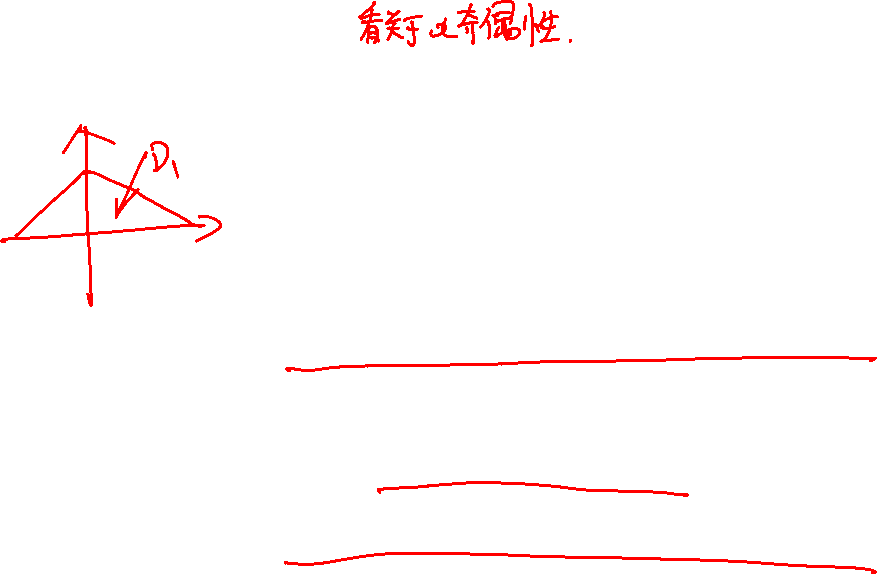 看关于x奇偶性.
D₁